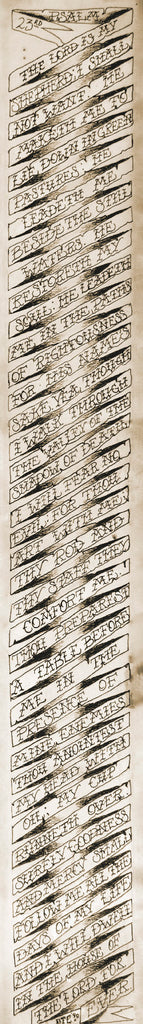 23RD PSALM
THE LORD IS MY
SHEPHERD I SHALL
NOT WANT. HE
MAKETH ME TO
LIE DOWN IN GREEN
PASTURES. HE
LEADETH ME
BESIDE THE STILL
WATERS. HE
RESTORETH MY
SOUL. HE LEADETH
ME IN THE PATHS
OF RIGHTOUSNESS
FOR HIS NAMES
SAKE. YEA, THOUGH
I WALK THROUGH
THE VALLEY OF THE
SHADOW OF DEATH
I WILL FEAR NO
EVIL FOR THOU
ART WITH ME
THY ROD AND
THY STAFF THEY
COMFORT ME.
THOU PREPAREST
A TABLE BEFORE
ME IN THE
PRESENCE OF
MINE ENEMIES
THOU ANOINTEST
MY HEAD WITH
OIL. MY CUP
RUNNETH OVER.
SURELY GOODNESS
AND MERCY SHALL
FOLLOW ME ALL THE
DAYS OF MY LIFE
AND I WILL DWELL
IN THE HOUSE OF
THE LORD FOR
EVER